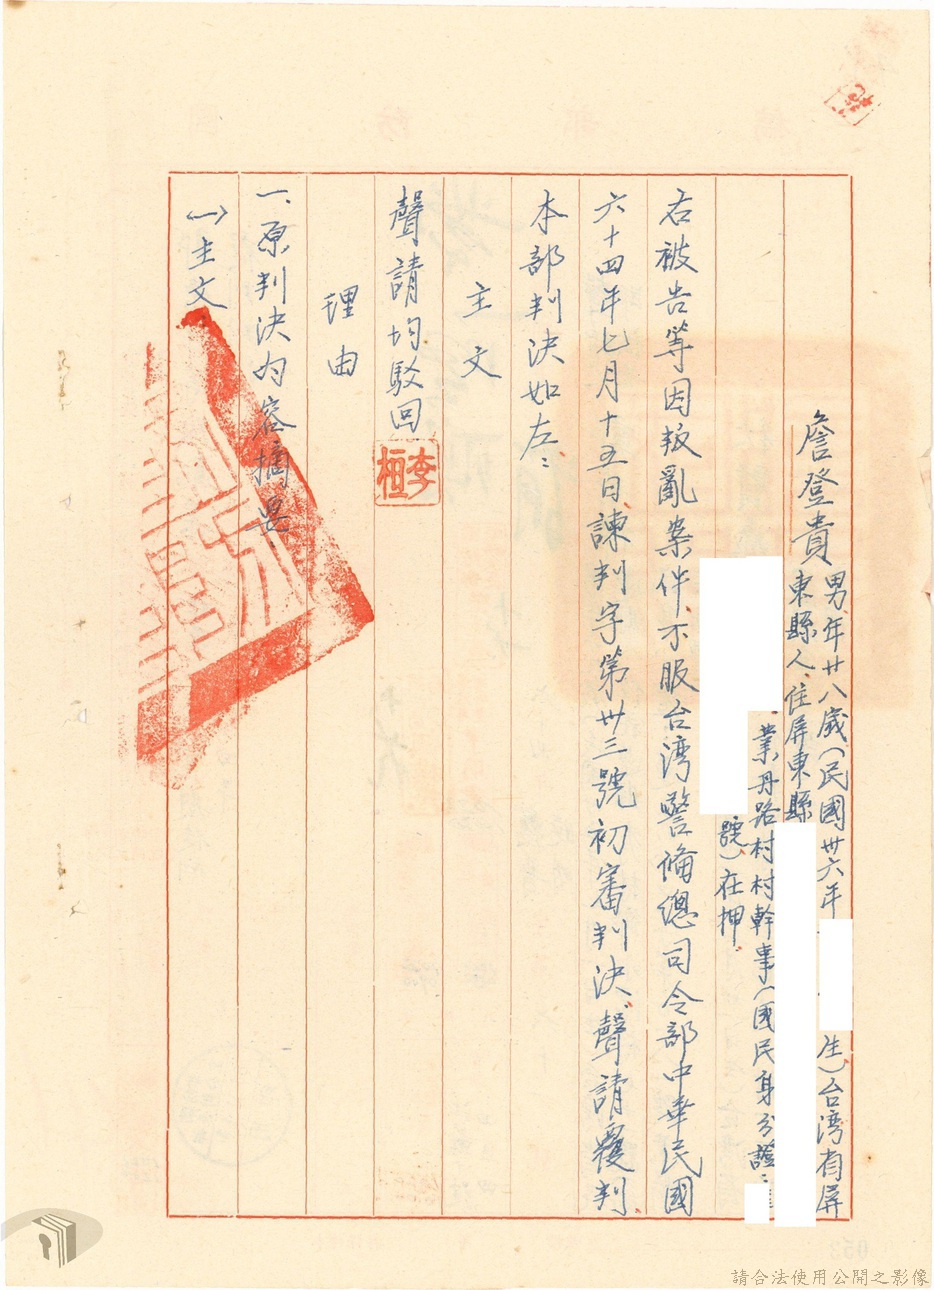 詹登貴 男、年廿八歲（民國卅六年
生）台湾省屏
東縣人、住屏東縣
業丹路村村幹事（國民身分證
號）在押。
右被告等因叛亂案件、不服台湾警備總司令部中華民國
六十四年七月十五日諫判字第卅三號初審判決、聲請覆判、
本部判決如左：
主文
聲請均駁回
李桓
理由
一、原判決內容摘呈
㈠主文
請合法使用公開之影像